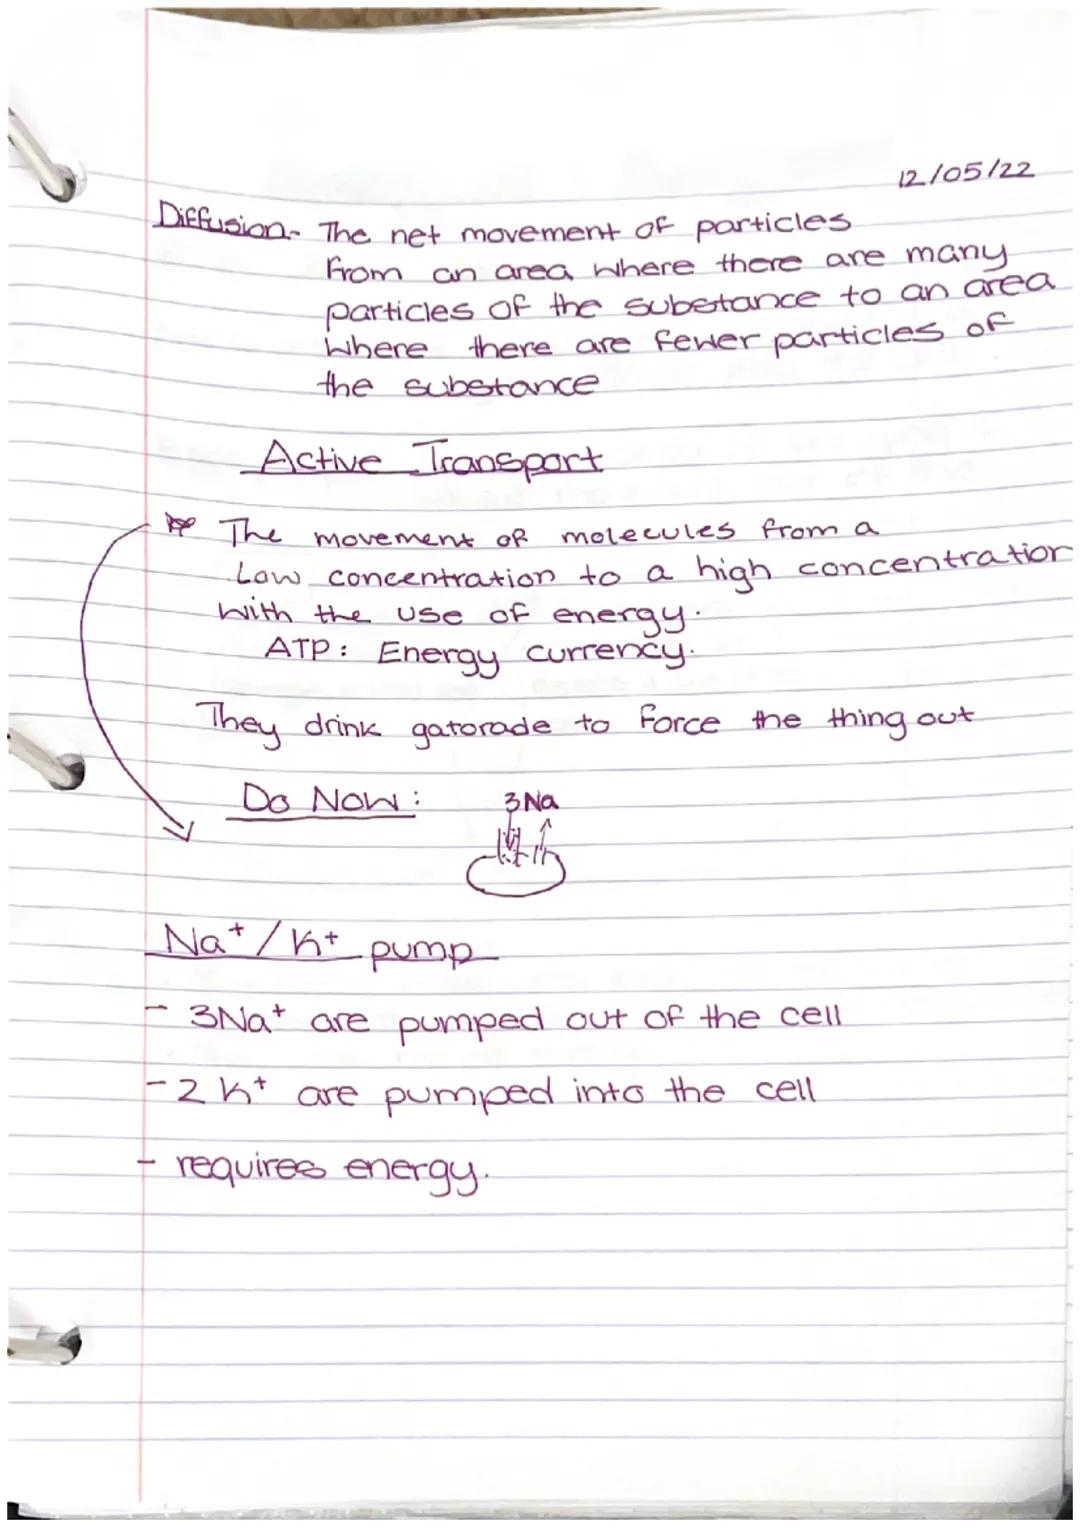 12/05/22
Diffusion- The net movement of particles
from an area where there are many
particles of the substance to an area
where there are fewer particles of
the substance
Active Transport
The movement of molecules from a
Low concentration to a high concentration
with the use of energy.
ATP: Energy currency.
They drink gatorade to force the thing out
Do Now:
3 Na
Na+/K+ pump
- 3Na+ are pumped out of the cell
- 2 K+ are pumped into the cell
- requires energy.